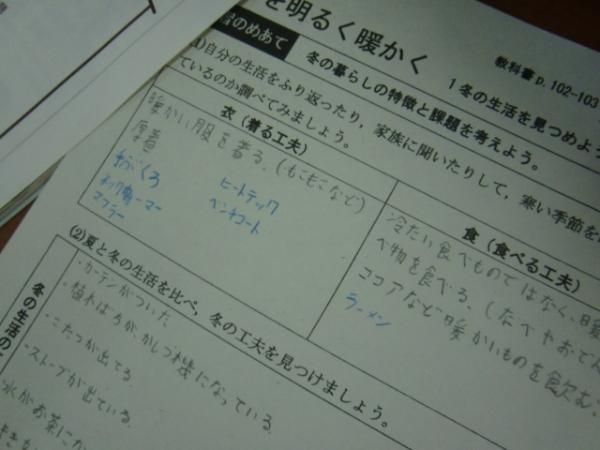 を明るく暖かく
教科書 p.102-103
のめあて
1 冬の生活を見つめよう
冬の暮らしの特徴と課題を考えよう。
(1)自分の生活をふり返ったり，家族に聞いたりして，寒い季節を
ているのか調べてみましょう。
衣（着る工夫）
暖かい服を着る。(もこもこなど)
厚着
てぶくろ
ヒートテック
ネックウォーマー
ベンチコート
マフラー
食（食べる工夫）
冷たい食べものではなく、暖
べ物を食べる。(なべやおでん
ココアなど暖かいものを飲む。
ラーメン
(2)夏と冬の生活を比べ，冬の工夫を見つけましょう。
冬の生活の
・カーテンがついた
・こたつが出てる。
・ストーブが出ている。
水がお茶にな